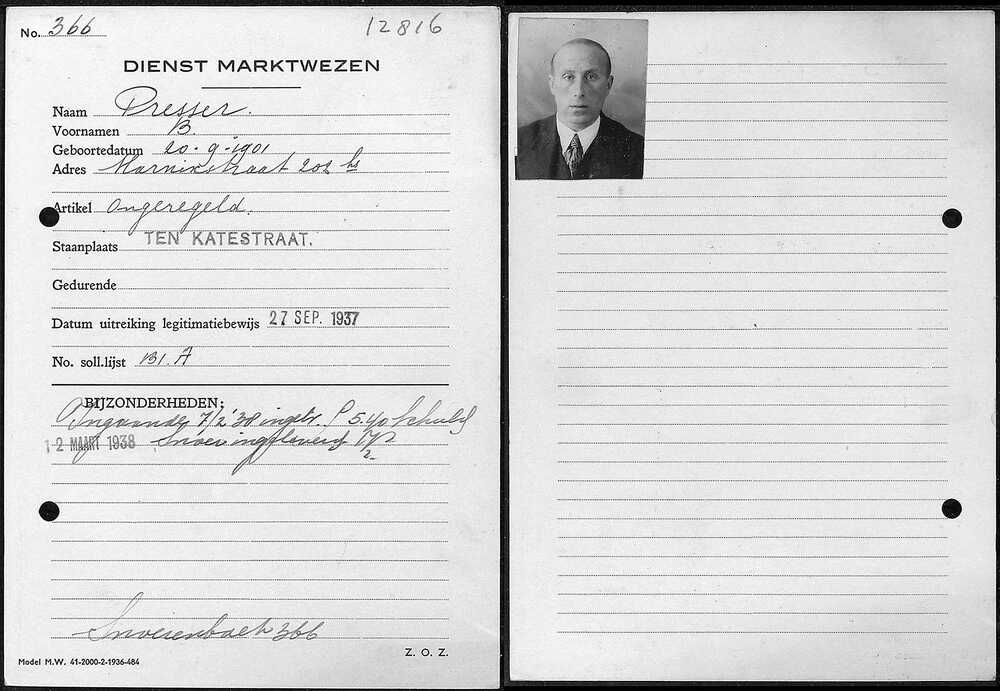 No. 366
12816
DIENST MARKTWEZEN
Naam Presser.
Voornamen B.
Geboortedatum 20-9-1901
Adres Marnixstraat 202 hs
Artikel Ongeregeld.
Staanplaats TEN KATESTRAAT.
Gedurende
Datum uitreiking legitimatiebewijs 27 SEP. 1937
No. soll.lijst 131. A
BIJZONDERHEDEN:
Ingaande 7/2 '38 ingetr. f 5.40 schuld
12 MAART 1938 ingeleverd
366
Model M.W. 41-2000-2-1936-484
Z. O. Z.